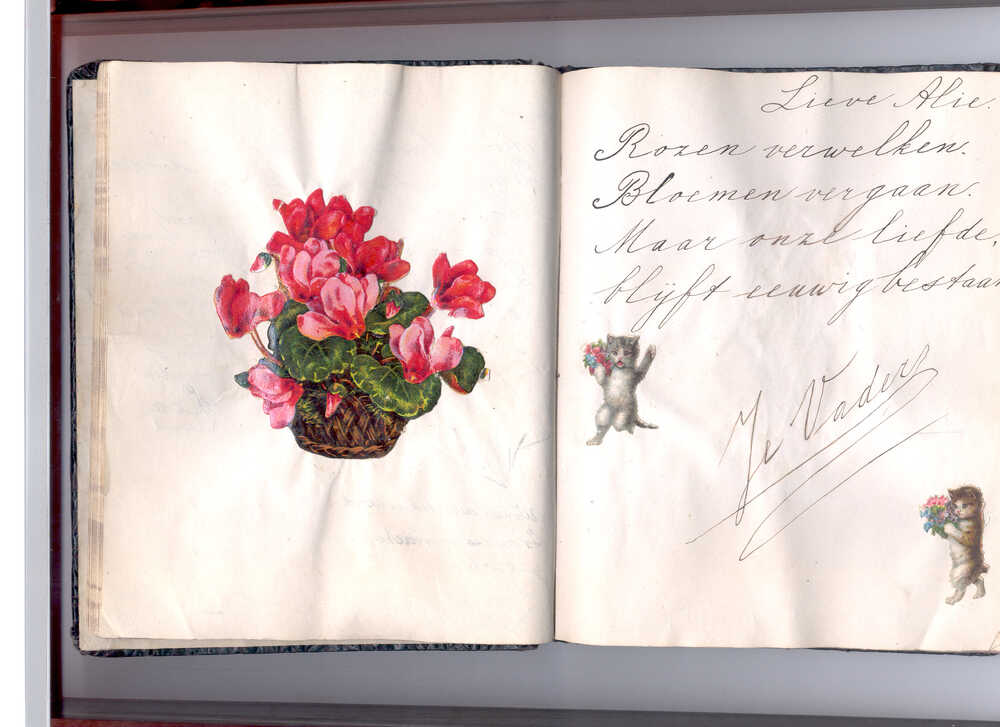 Lieve Alie.
Rozen verwelken.
Bloemen vergaan.
Maar onze liefde,
blijft eeuwig bestaan
Je Vader